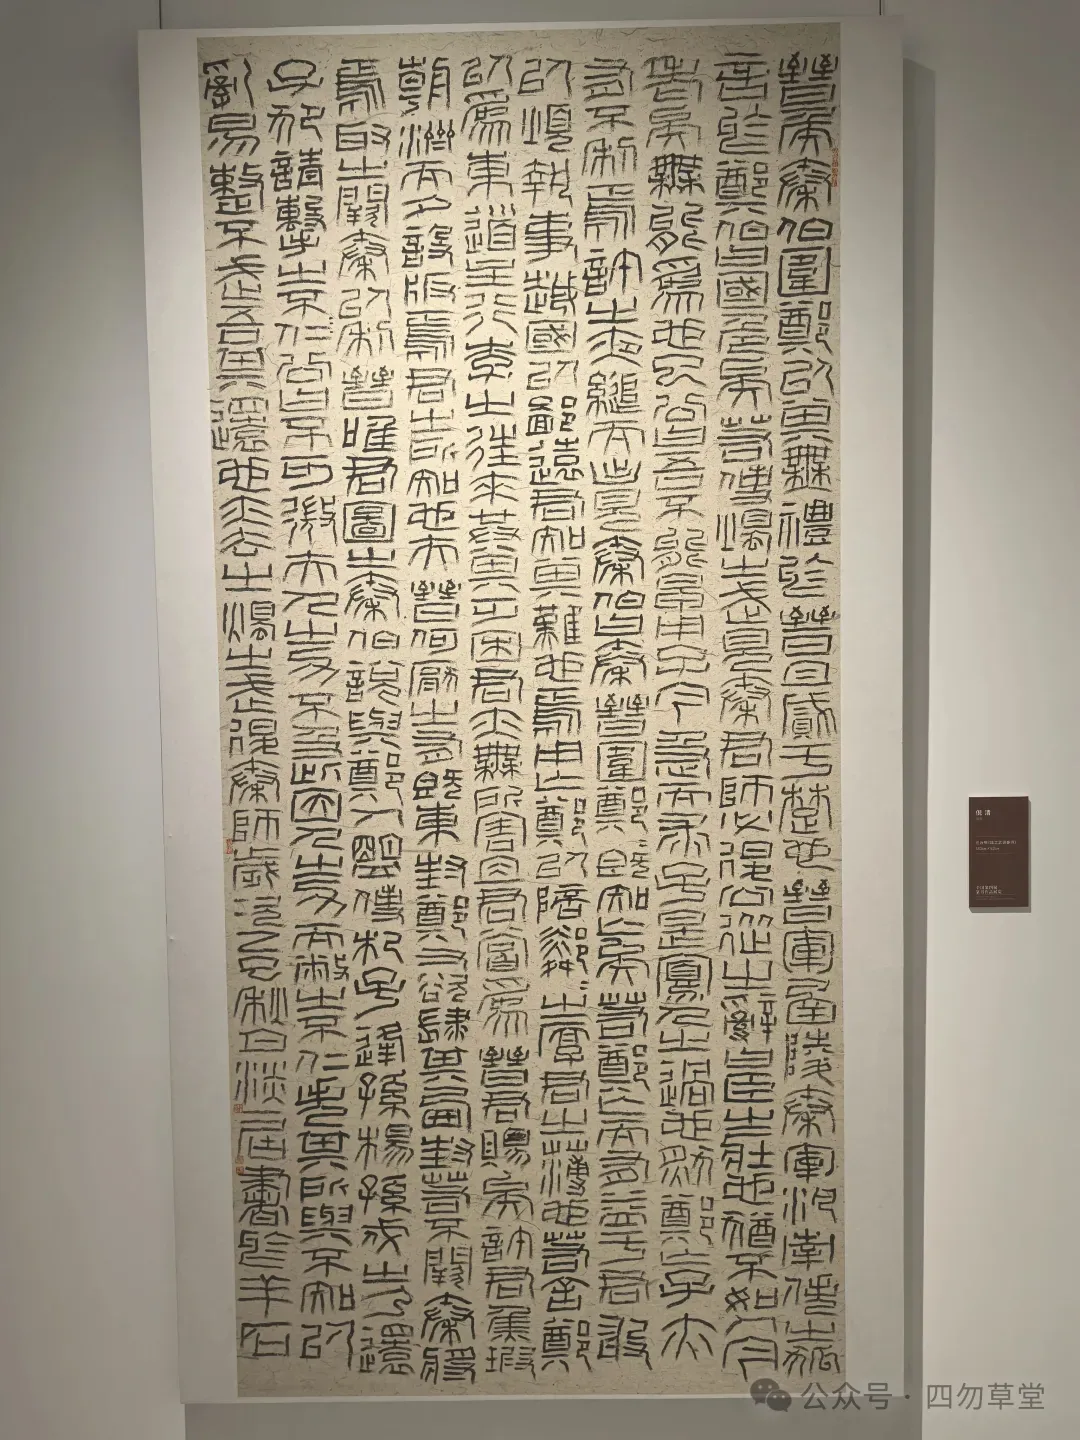 晉矦秦伯圍鄭以其無禮於晉且貳于楚也晉軍函陵秦軍氾南佚之狐
言於鄭伯曰國危矣若使燭之武見秦君師必退公從之辭曰臣之壯也猶不如人今
老矣無能為也已公曰吾不能早用子今急而求子是寡人之過也然鄭亡子亦
有不利焉許之夜縋而出見秦伯曰秦晉圍鄭既知亡矣若鄭亡而有益于君敢
以煩執事越國以鄙遠君知其難也焉用亡鄭以陪鄰鄰之厚君之薄也若舍鄭
以為東道主行李之往來共其乏困君亦無所害且君嘗為晉君賜矣許君焦瑕
朝濟而夕設版焉君之所知也夫晉何厭之有既東封鄭又欲肆其西封若不闕秦將
焉取之闕秦以利晉唯君圖之秦伯說與鄭人盟使杞子逢孫楊孫戍之乃還
子犯請擊之公曰不可微夫人之力不及此因人之力而敝之不仁失其所與不知以
亂易整不武吾其還也亦去之燭之武退秦師歲次乙巳秋書於羊石
公众号·四勿草堂